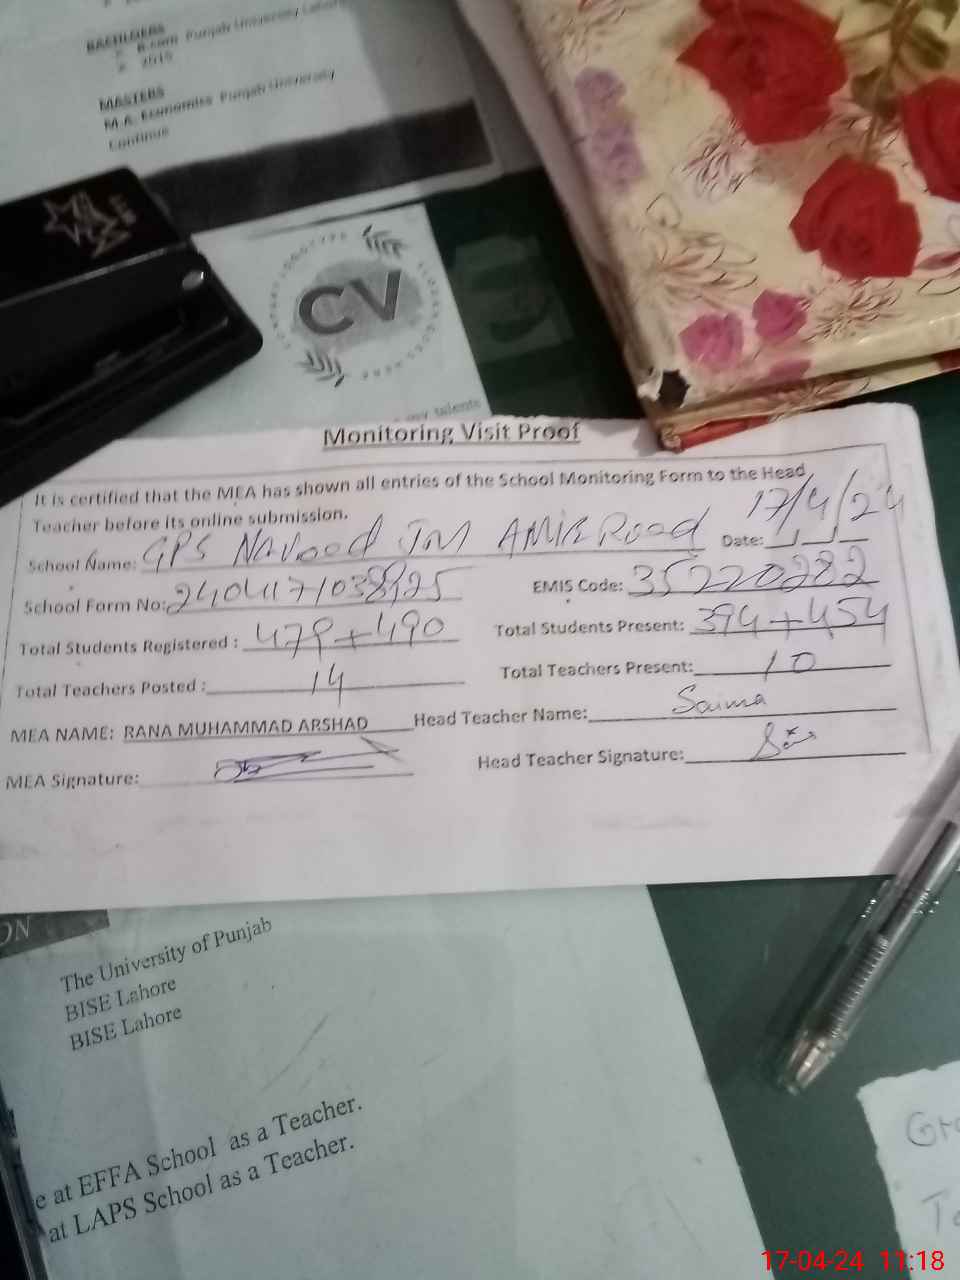 BACHELORS
B.com Punjab University Lahore
2015
MASTERS
M.A. Economics Punjab University
Continue
CV
my talents
Monitoring Visit Proof
It is certified that the MEA has shown all entries of the School Monitoring Form to the Head
Teacher before its online submission.
School Name: GPS Road Date: 17/4/24
School Form No: EMIS Code: 35220282
Total Students Registered : 479+490 Total Students Present: 394+454
Total Teachers Posted : 14 Total Teachers Present: 10
MEA NAME: RANA MUHAMMAD ARSHAD Head Teacher Name: Saima
MEA Signature: Head Teacher Signature:
ON
The University of Punjab
BISE Lahore
BISE Lahore
e at EFFA School as a Teacher.
at LAPS School as a Teacher.
17-04-24 11:18